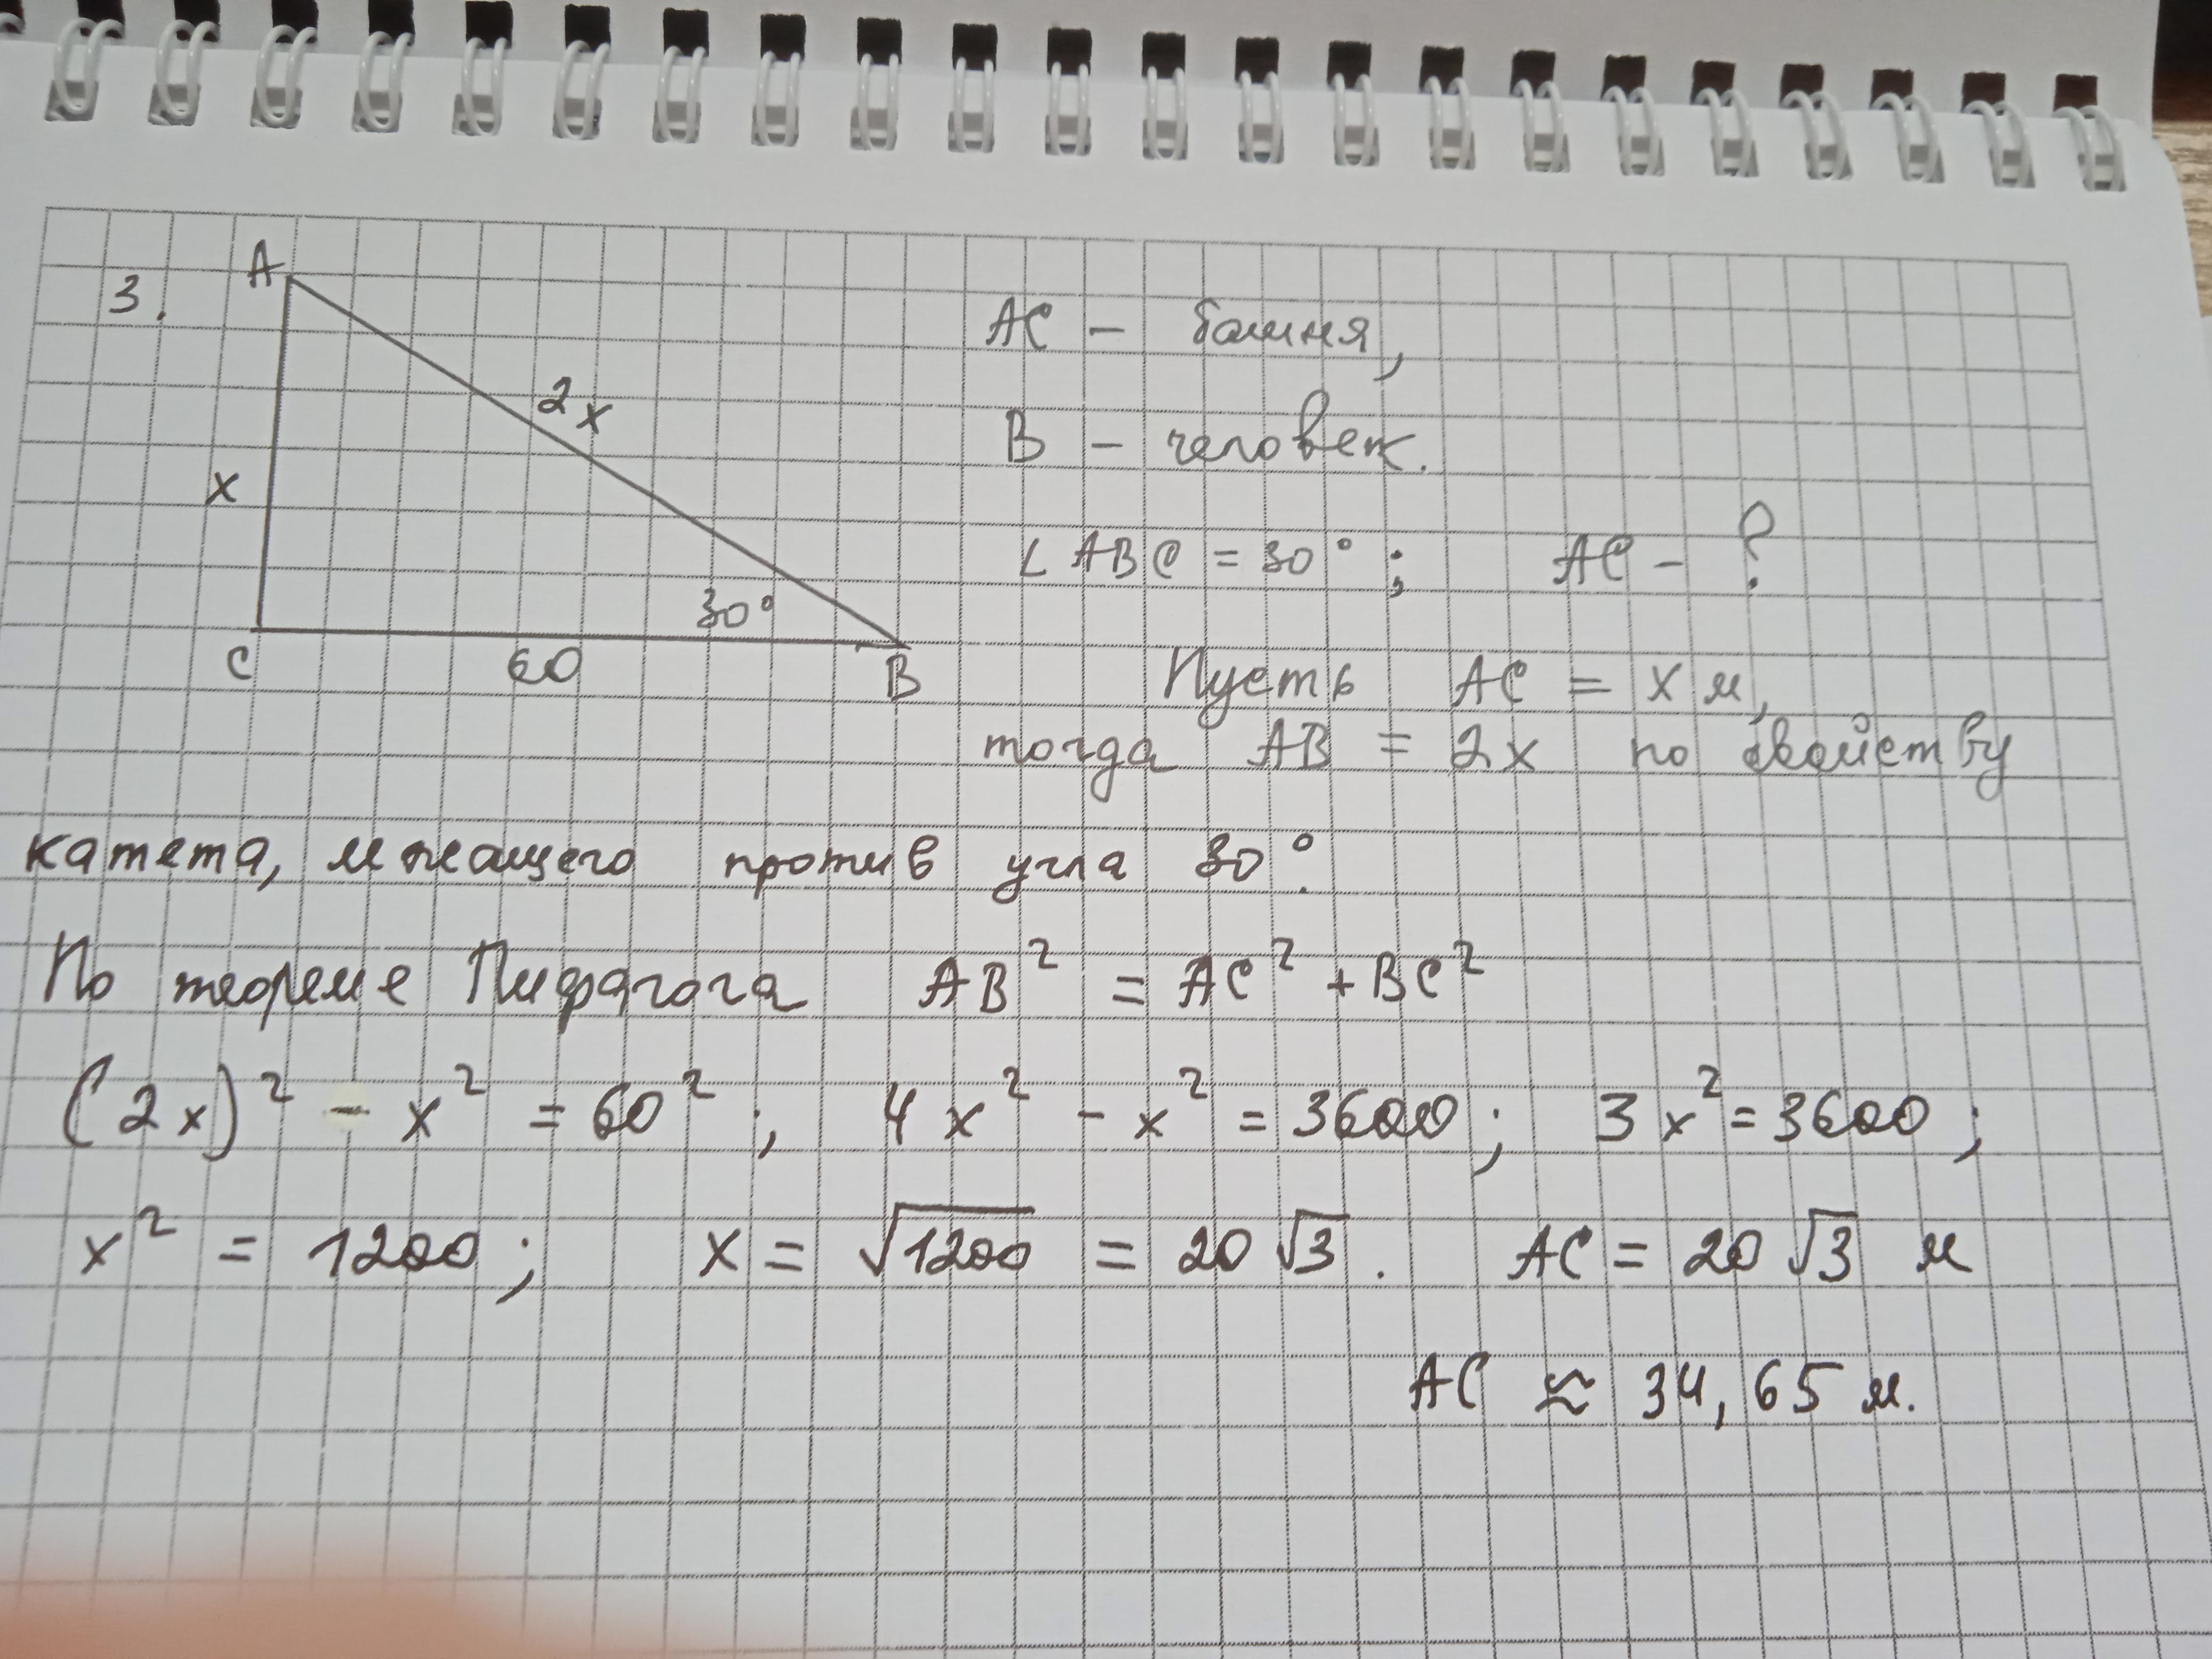 3.
A
2x
x
30°
C
60
B
AC – башня,
B – человек.
∠ABC = 30° ; AC – ?
Пусть AC = x м,
тогда AB = 2x по свойству
катета, лежащего против угла 30°.
По теореме Пифагога AB² = AC² + BC²
(2x)² – x² = 60² ; 4x² – x² = 3600 ; 3x² = 3600 ;
x² = 1200 ; x = √1200 = 20√3 . AC = 20√3 м
AC ≈ 34,65 м.